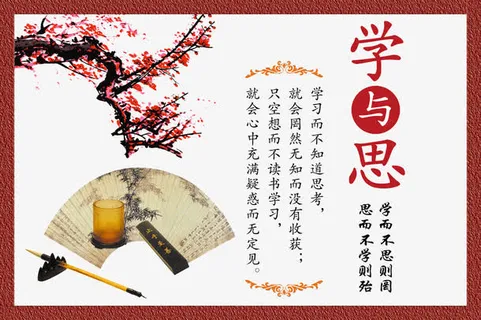 学与思
学而不思则罔
思而不学则殆
学习而不知道思考，
就会罔然无知而没有收获；
只空想而不读书学习，
就会心中充满疑惑而无定见。